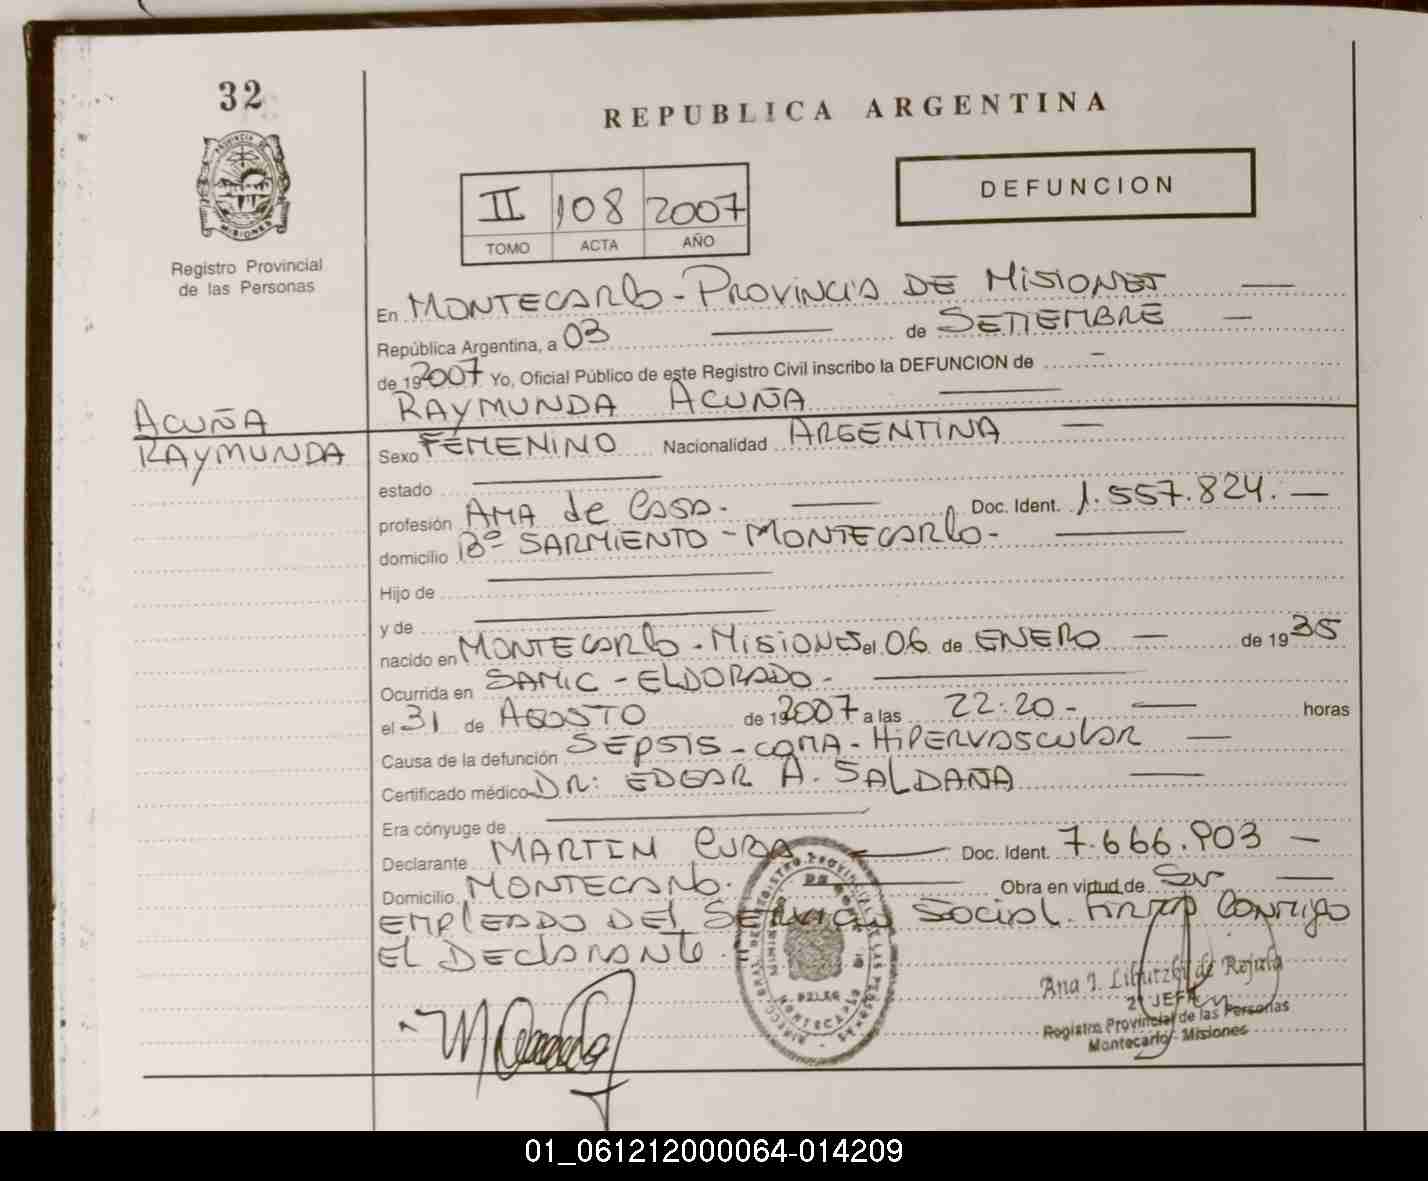 32
REPUBLICA ARGENTINA
PROVINCIA DE
MISIONES
Registro Provincial
de las Personas
II 108 2007
TOMO ACTA AÑO
DEFUNCION
En MONTECARlo - PROVINCIA DE MISIONES —
República Argentina, a 03 — de SETIEMBRE —
de 192007 Yo, Oficial Público de este Registro Civil inscribo la DEFUNCION de -
RAYMUNDA ACUÑA —
ACUÑA
RAYMUNDA
Sexo FEMENINO Nacionalidad ARGENTINA —
estado —
profesión AMA de CASA. — Doc. Ident. 1.557.824. —
domicilio Bº SARMIENTO - MONTECARlo - —
Hijo de —
y de —
nacido en MONTECARlo - MISIONES el 06 de ENERO — de 19 35
Ocurrida en SAMIC - ELDORADO - —
el 31 de AGOSTO de 192007 a las 22:20 - — horas
Causa de la defunción SEPSIS - COMA - HIPERVASCULAR —
Certificado médico DR: EDGAR A. SALDAÑA —
Era cónyuge de —
Declarante MARTIN — Doc. Ident. 7.666.903 —
Domicilio MONTECARlo. — Obra en virtud de Ser —
EMPLEADO DEL SERVICIO SOCIAL. FIRMA CONMIGO
EL DECLARANTE.
Ana I. de
2º JEFE
Registro Provincial de las Personas
Montecarlo - Misiones
01_061212000064-014209